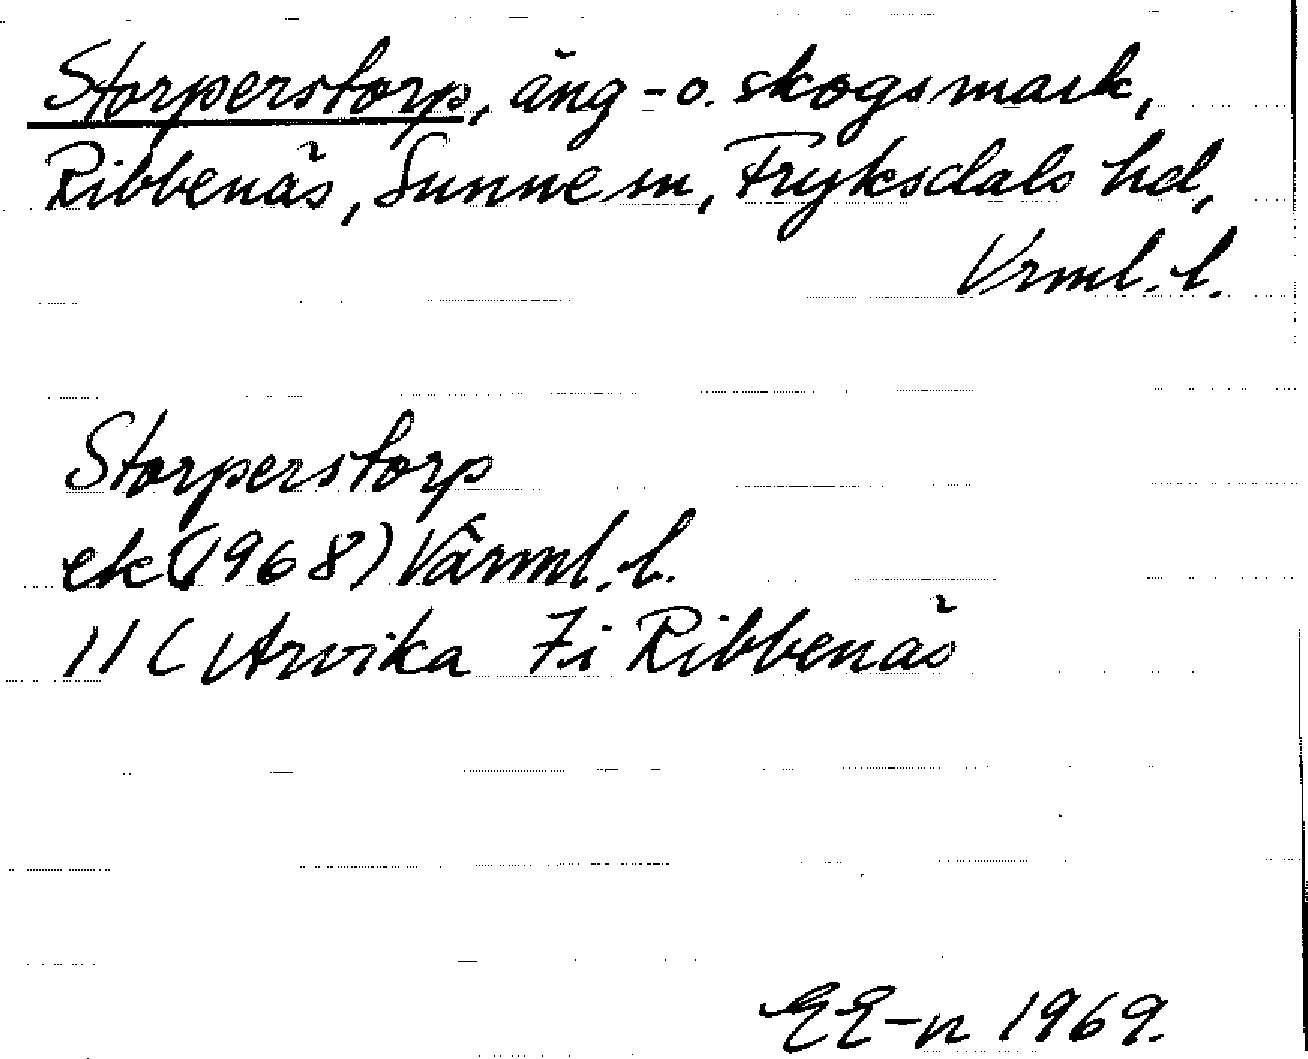 Storperstorp, äng- o. skogsmark,
Ribbenäs, Sunne sn, Fryksdals hd,
Vrml. l.
Storperstorp
ek (1968) Värml. l.
11 C Arvika 7i Ribbenäs
EE-n 1969.